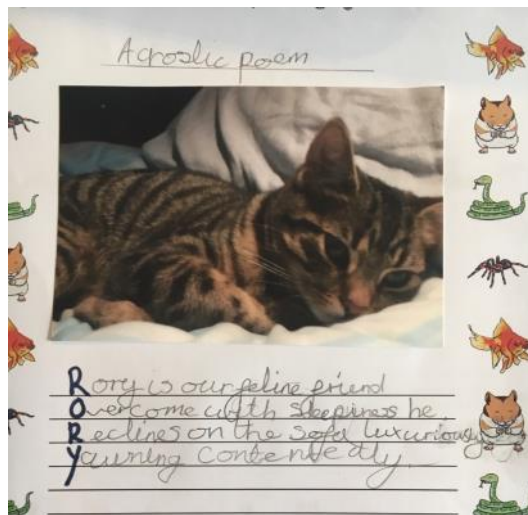 Acrostic poem
Rory is our feline friend
Overcome with sleepiness he
Reclines on the sofa luxuriously
Yawning contentedly.